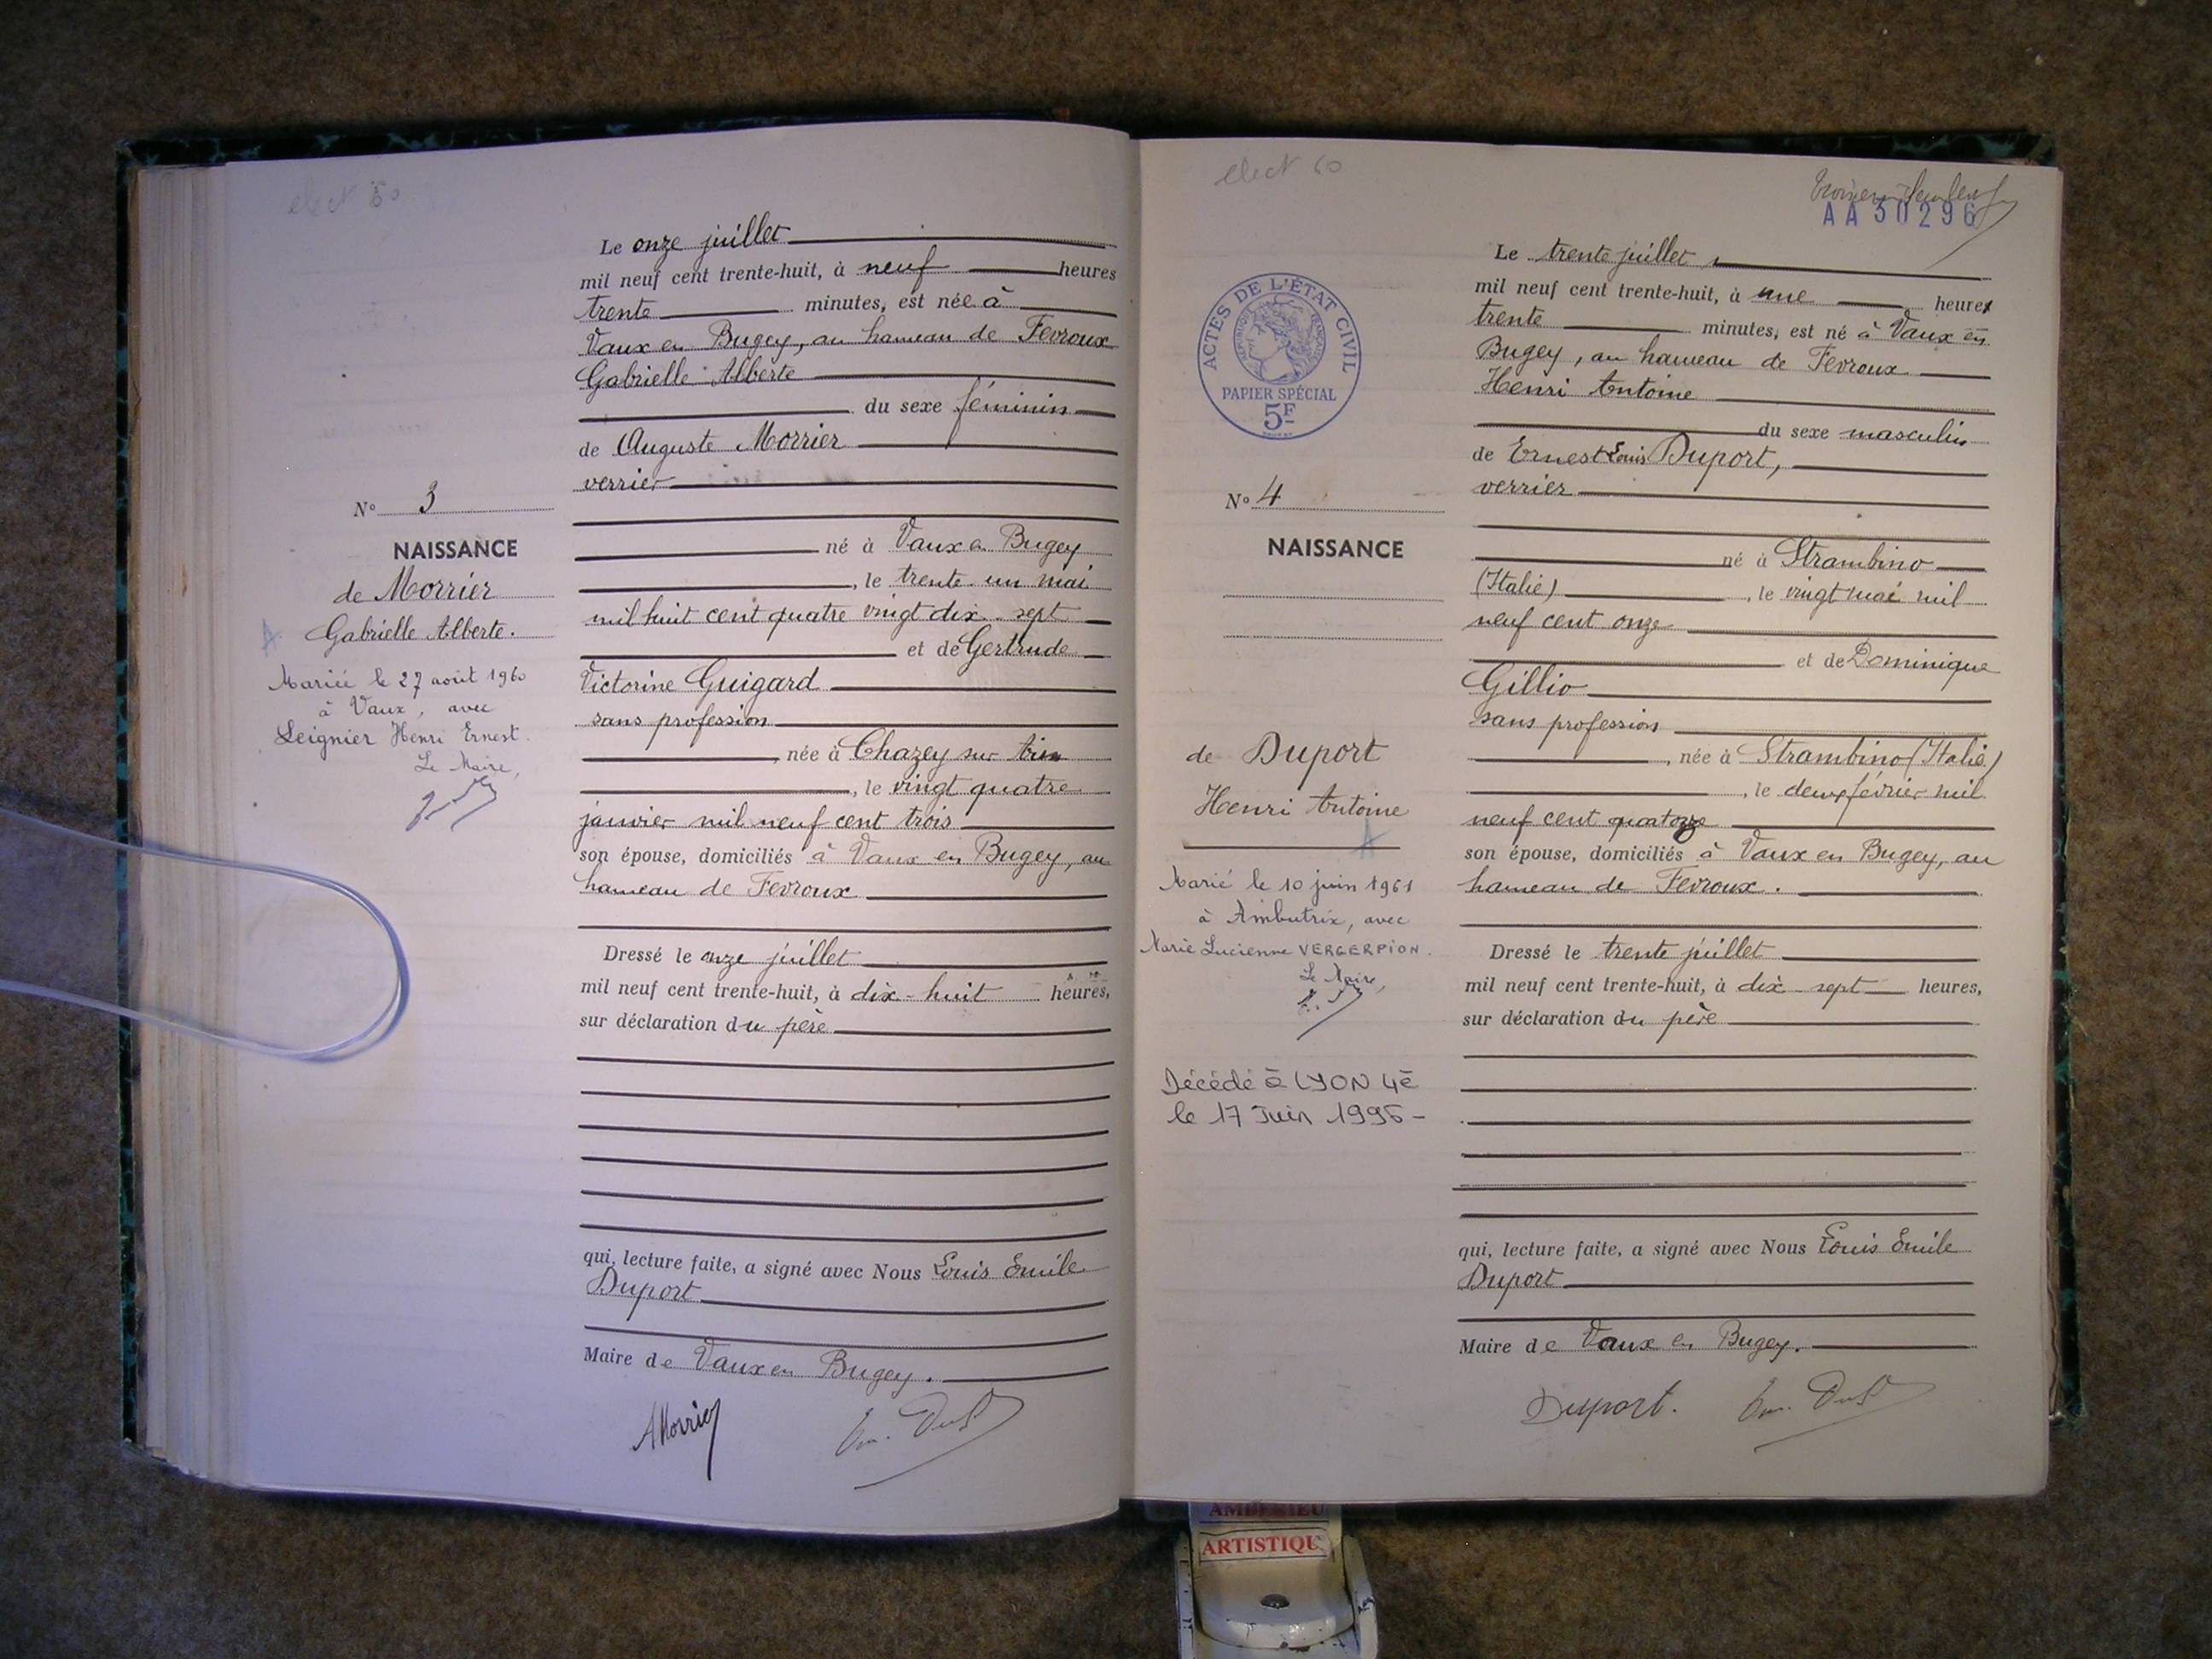 elect 60
Le onze juillet
mil neuf cent trente-huit, à neuf heures
trente minutes, est née à
Vaux en Bugey, au hameau de Fevroux
Gabrielle Alberte
du sexe féminin
de Auguste Morrier
verrier
né à Vaux en Bugey
, le trente un mai
mil huit cent quatre vingt dix-sept
et de Gertrude
Victorine Guigard
sans profession
, née à Chazey sur Ain
, le vingt quatre
janvier mil neuf cent trois
son épouse, domiciliés à Vaux en Bugey, au
hameau de Fevroux
Dressé le onze juillet
mil neuf cent trente-huit, à dix-huit heures,
sur déclaration du père
qui, lecture faite, a signé avec Nous Louis Emile
Duport
Maire de Vaux en Bugey.
AMorrier
Em. Duport
N° 3
NAISSANCE
de Morrier
Gabrielle Alberte.
A
Mariée le 27 août 1960
à Vaux, avec
Leignier Henri Ernest.
Le Maire,
elect 60
AA30296
Le trente juillet
mil neuf cent trente-huit, à une heures
trente minutes, est né à Vaux en
Bugey, au hameau de Fevroux
Henri Antoine
du sexe masculin
de Ernest Louis Duport,
verrier
né à Strambino
(Italie), le vingt mai mil
neuf cent onze
et de Dominique
Gillio
sans profession
, née à Strambino (Italie)
, le deux février mil
neuf cent quatorze
son épouse, domiciliés à Vaux en Bugey, au
hameau de Fevroux.
Dressé le trente juillet
mil neuf cent trente-huit, à dix-sept heures,
sur déclaration du père
qui, lecture faite, a signé avec Nous Louis Emile
Duport
Maire de Vaux en Bugey.
Duport. Em. Duport
ACTES DE L'ÉTAT CIVIL
RÉPUBLIQUE FRANÇAISE
PAPIER SPÉCIAL
5F
N° 4
NAISSANCE
de Duport
Henri Antoine
A
Marié le 10 juin 1961
à Ambutrix, avec
Marie Lucienne VERGERPION.
Le Maire,
Décédé à LYON 4è
le 17 Juin 1995-
AMBERIEU
ARTISTIQU